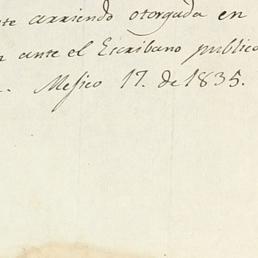 te arriendo otorgada en
n ante el Escribano public
. Messico 17. de 1835.